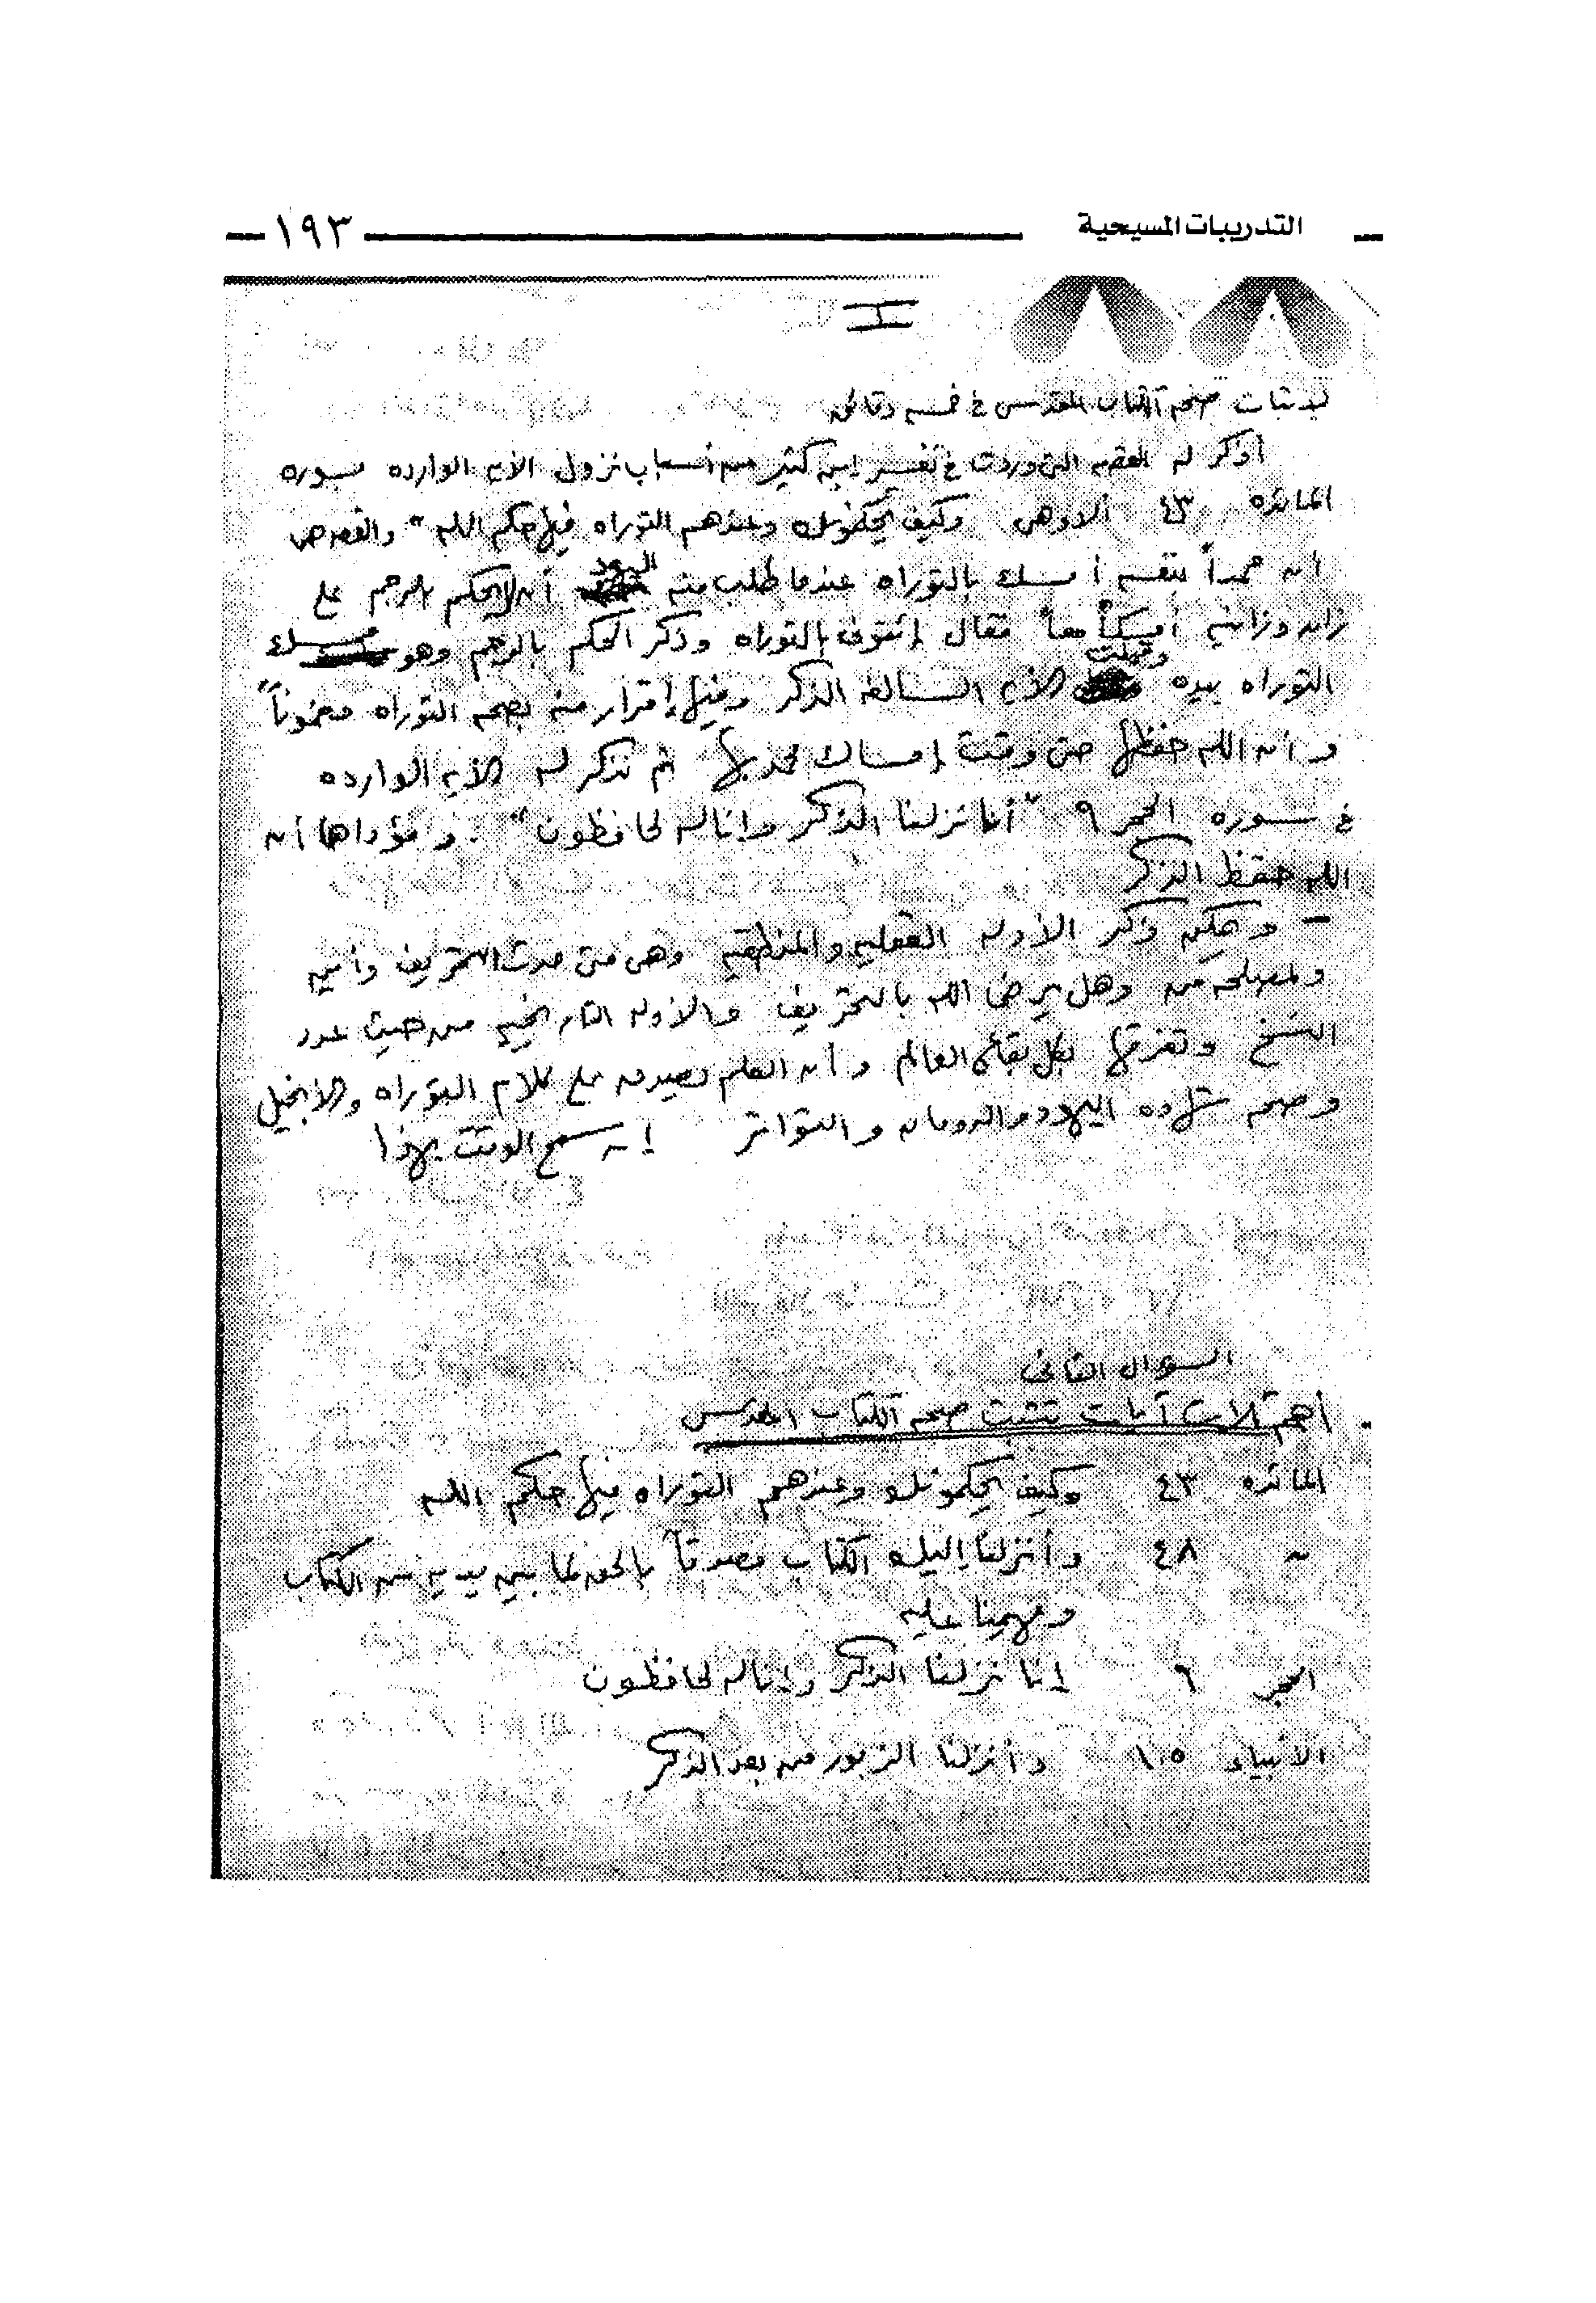 التدريبات المسيحية
١٩٣
I
لإثبات صحة الكتاب المقدس في خمسه دقائق
أذكر له القصه التي وردت في تفسير إبن كثير من أسباب نزول الآيه الوارده بسوره
المائده ٤٣ ألا وهي وكيف يحكمونك وعندهم التوراه فيها حكم الله" والقصه هي
أن محمداً بنفسه أمسك بالتوراه عندما طلب منه اليهود أن يحكم بالرجم على
زان وزانيه معاً فقال إئتوني بالتوراه وذكر الحكم بالرجم وهو ممسك
التوراه بيده الآيه السالفه الذكر وفيها إقرار منه بصحه التوراه مضموناً
وأن الله حفظها حتى وقت إمساك محمد بها ثم نذكر له الآيه الوارده
في سوره الحجر ٩ "أنا نزلنا الذكر وإنا له لحافظون". ومؤداها أن
الله حفظ الذكر
- ويمكن ذكر الأدله العقليه والمنطقيه وهي متى حدث التحريف وأين
ولمصلحه من وهل يرضى الله بالتحريف والأدله التاريخيه من حيث عدد
النسخ وتفرقها بكل بقاع العالم وأن العلم يصدق على كلام التوراه والأنجيل
وصحه شهاده اليهود والرومان والتواتر إن سمح الوقت بهذا
السؤال الثاني
أهم ثلاث آيات تثبت صحه الكتاب المقدس
المائده ٤٣ وكيف يحكمونك وعندهم التوراه فيها حكم الله
" ٤٨ وأنزلنا إليك الكتاب مصدقاً بالحق لما بين يديه من الكتاب
ومهيمنا عليه
الحجر ٦ إنا نزلنا الذكر وإنا له لحافظون
الأنبياء ١٠٥ وأنزلنا الزبور من بعد الذكر